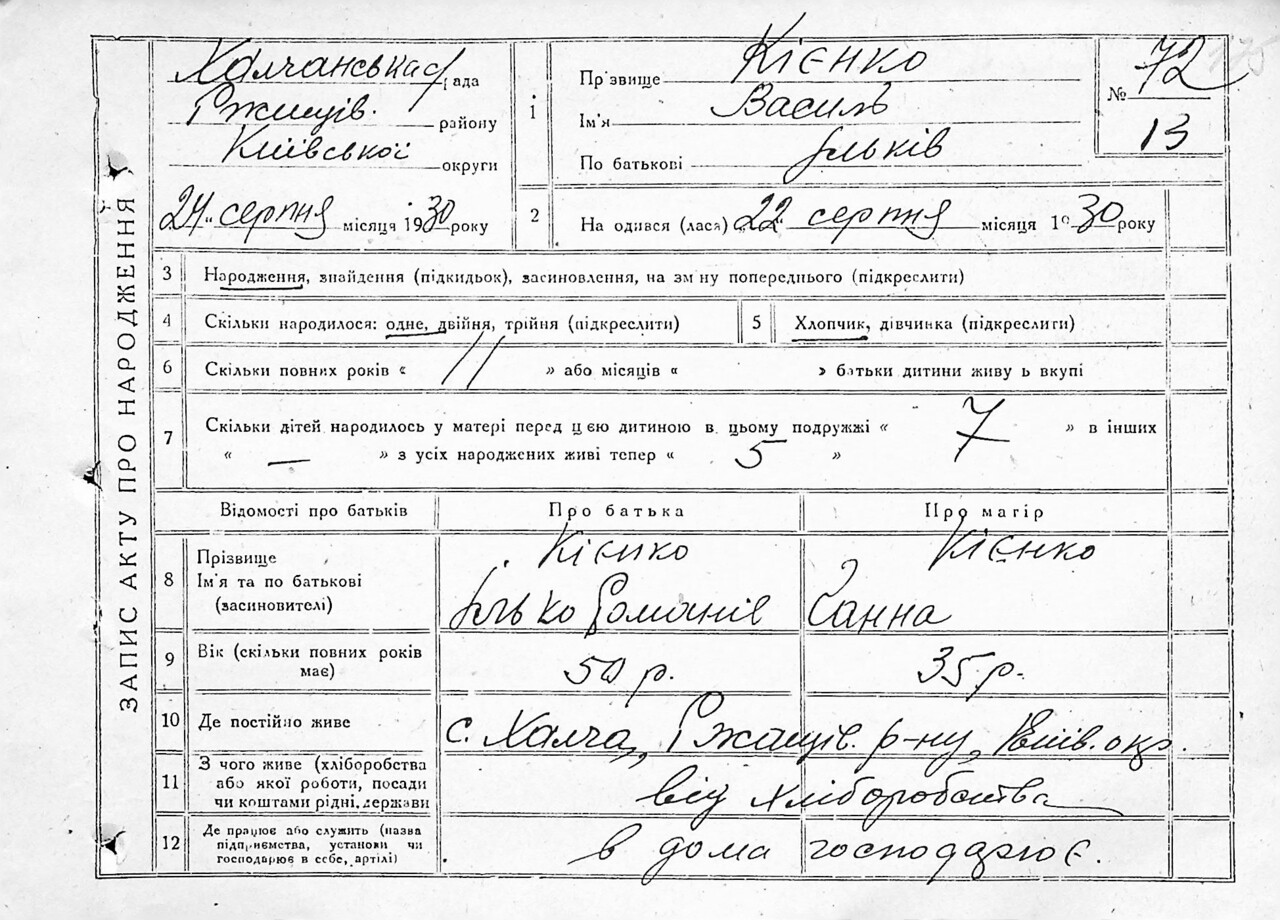 ЗАПИС АКТУ ПРО НАРОДЖЕННЯ
Халчанська рада
Ржищів. району
Київської округи
24 серпня місяця 1930 року
1
Прізвище Кієнко
Ім'я Василь
По батькові Ільків
№ 72
13
2 На одився (лася) „22" серпня місяця 1930 року
3 Народження, знайдення (підкидьок), засиновлення, на зм ну попереднього (підкреслити)
4 Скільки народилося: одне, двійня, трійня (підкреслити)
5 Хлопчик, дівчинка (підкреслити)
6 Скільки повних років « 11 » або місяців « » батьки дитини живу ь вкупі
7 Скільки дітей народилось у матері перед цією дитиною в цьому подружжі « 7 » в інших
« — » з усіх народжених живі тепер « 5 »
Відомості про батьків Про батька Про матір
8 Прізвище Ім'я та по батькові (засиновителі)
Кієнко
Ілько Романів
Кієнко
Ганна
9 Вік (скільки повних років має) 50 р. 35 р.
10 Де постійно живе с. Халча, Ржищів. р-ну, Київ. окр.
11 З чого живе (хліборобства
або якої роботи, посади
чи коштами рідні, держави
від хліборобства
12 Де працює або служить (назва
підприємства, установи чи
господарює в себе, артілі)
в дома господарює.